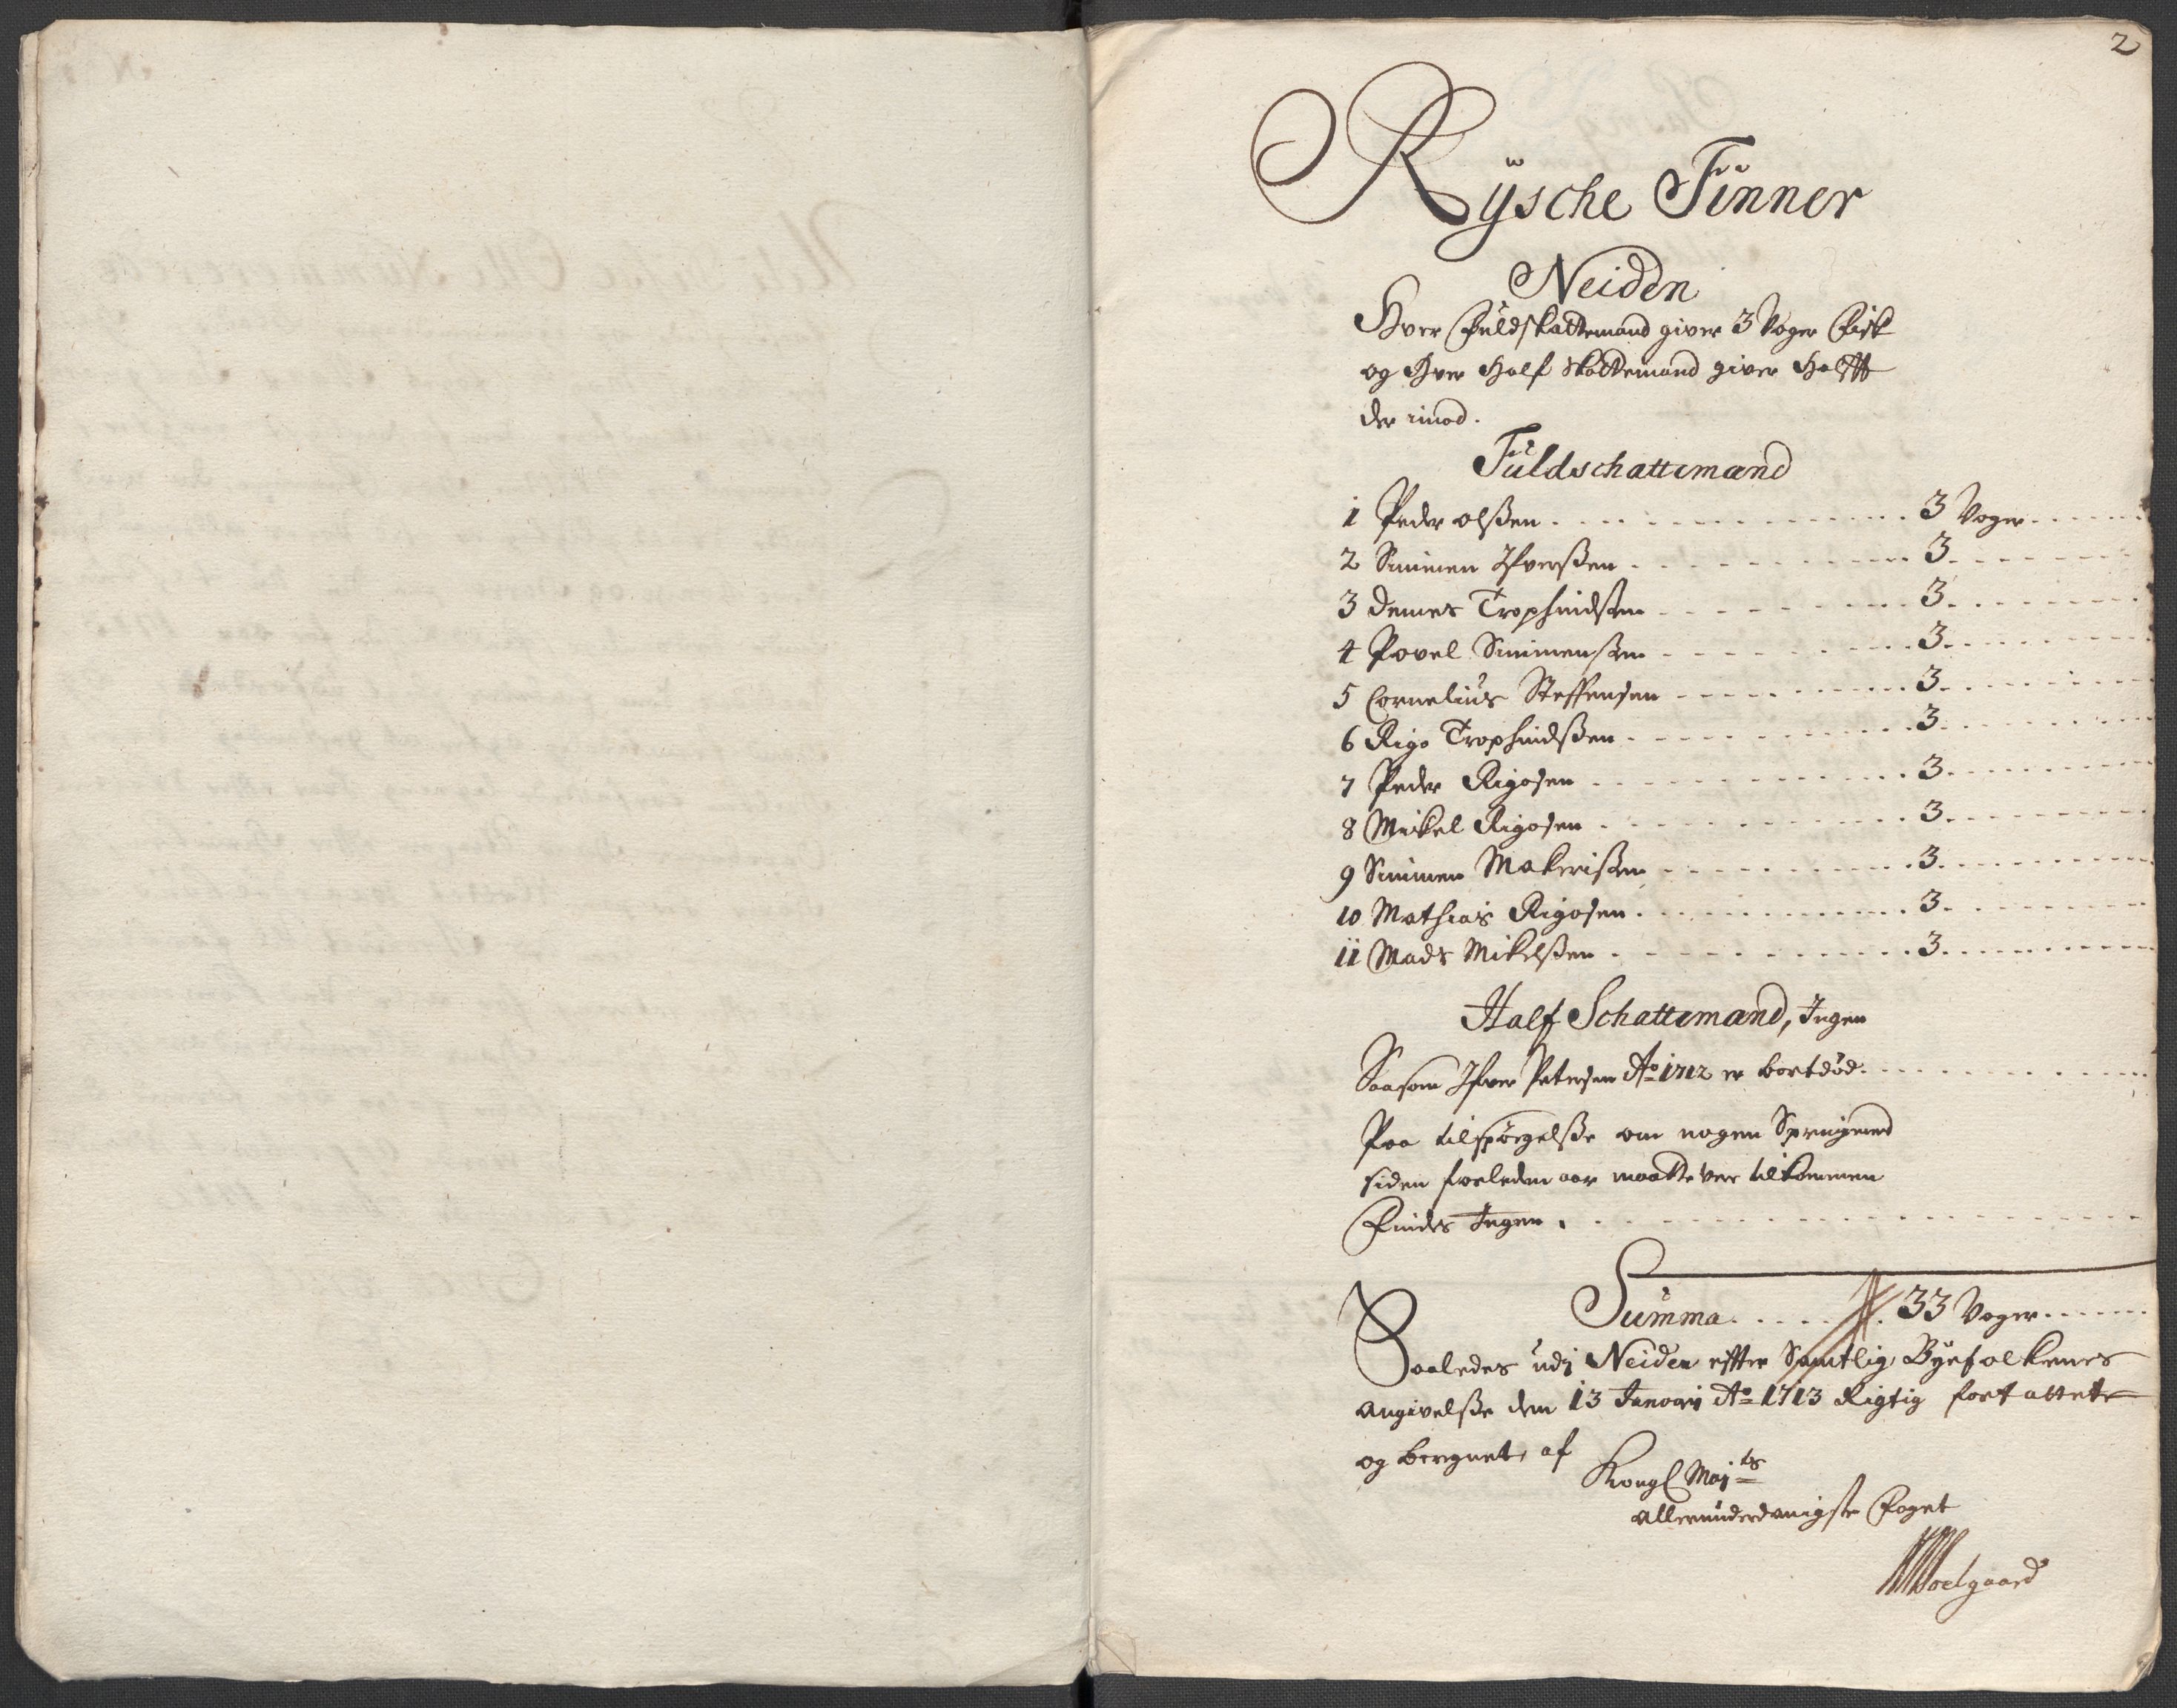 2
Rÿsche Finner
Neiden
Hver Fuldskattemand giver 3 Voger Fisk
og Hver Half Skattemand giver Halfft
der imod.
Fuldschattemand
1 Peder olßen . . . . 3 Voger
2 Simmen Ifverßen . . . . 3
3 Demes Trophindßen . . . . 3
4 Povel Simmenßen . . . . 3
5 Cornelius Steffensen . . . . 3
6 Rigo Trophindßen . . . . 3
7 Peder Rigosen . . . . 3
8 Mickel Rigosen . . . . 3
9 Simmen Makerißen . . . . 3
10 Mathias Rigosen . . . . 3
11 Mads Mikelßen . . . . 3
Half Schattemand, Ingen
Saasom Ifver Petersen Ao 1712 er bortdød . . . .
Paa tilspørgelße om nogen
siden forleden aar maatte ver tilkommen
Findes Ingen . . . .
Summa . . . . 33 Voger
Saaledes udj Neiden effter Samtlig Byefolkenes
angivelße den 13 Januarij Ao 1713 Rigtig forfattet
og beregnet, af
Kongl Majts
allerunderdanigste Foget